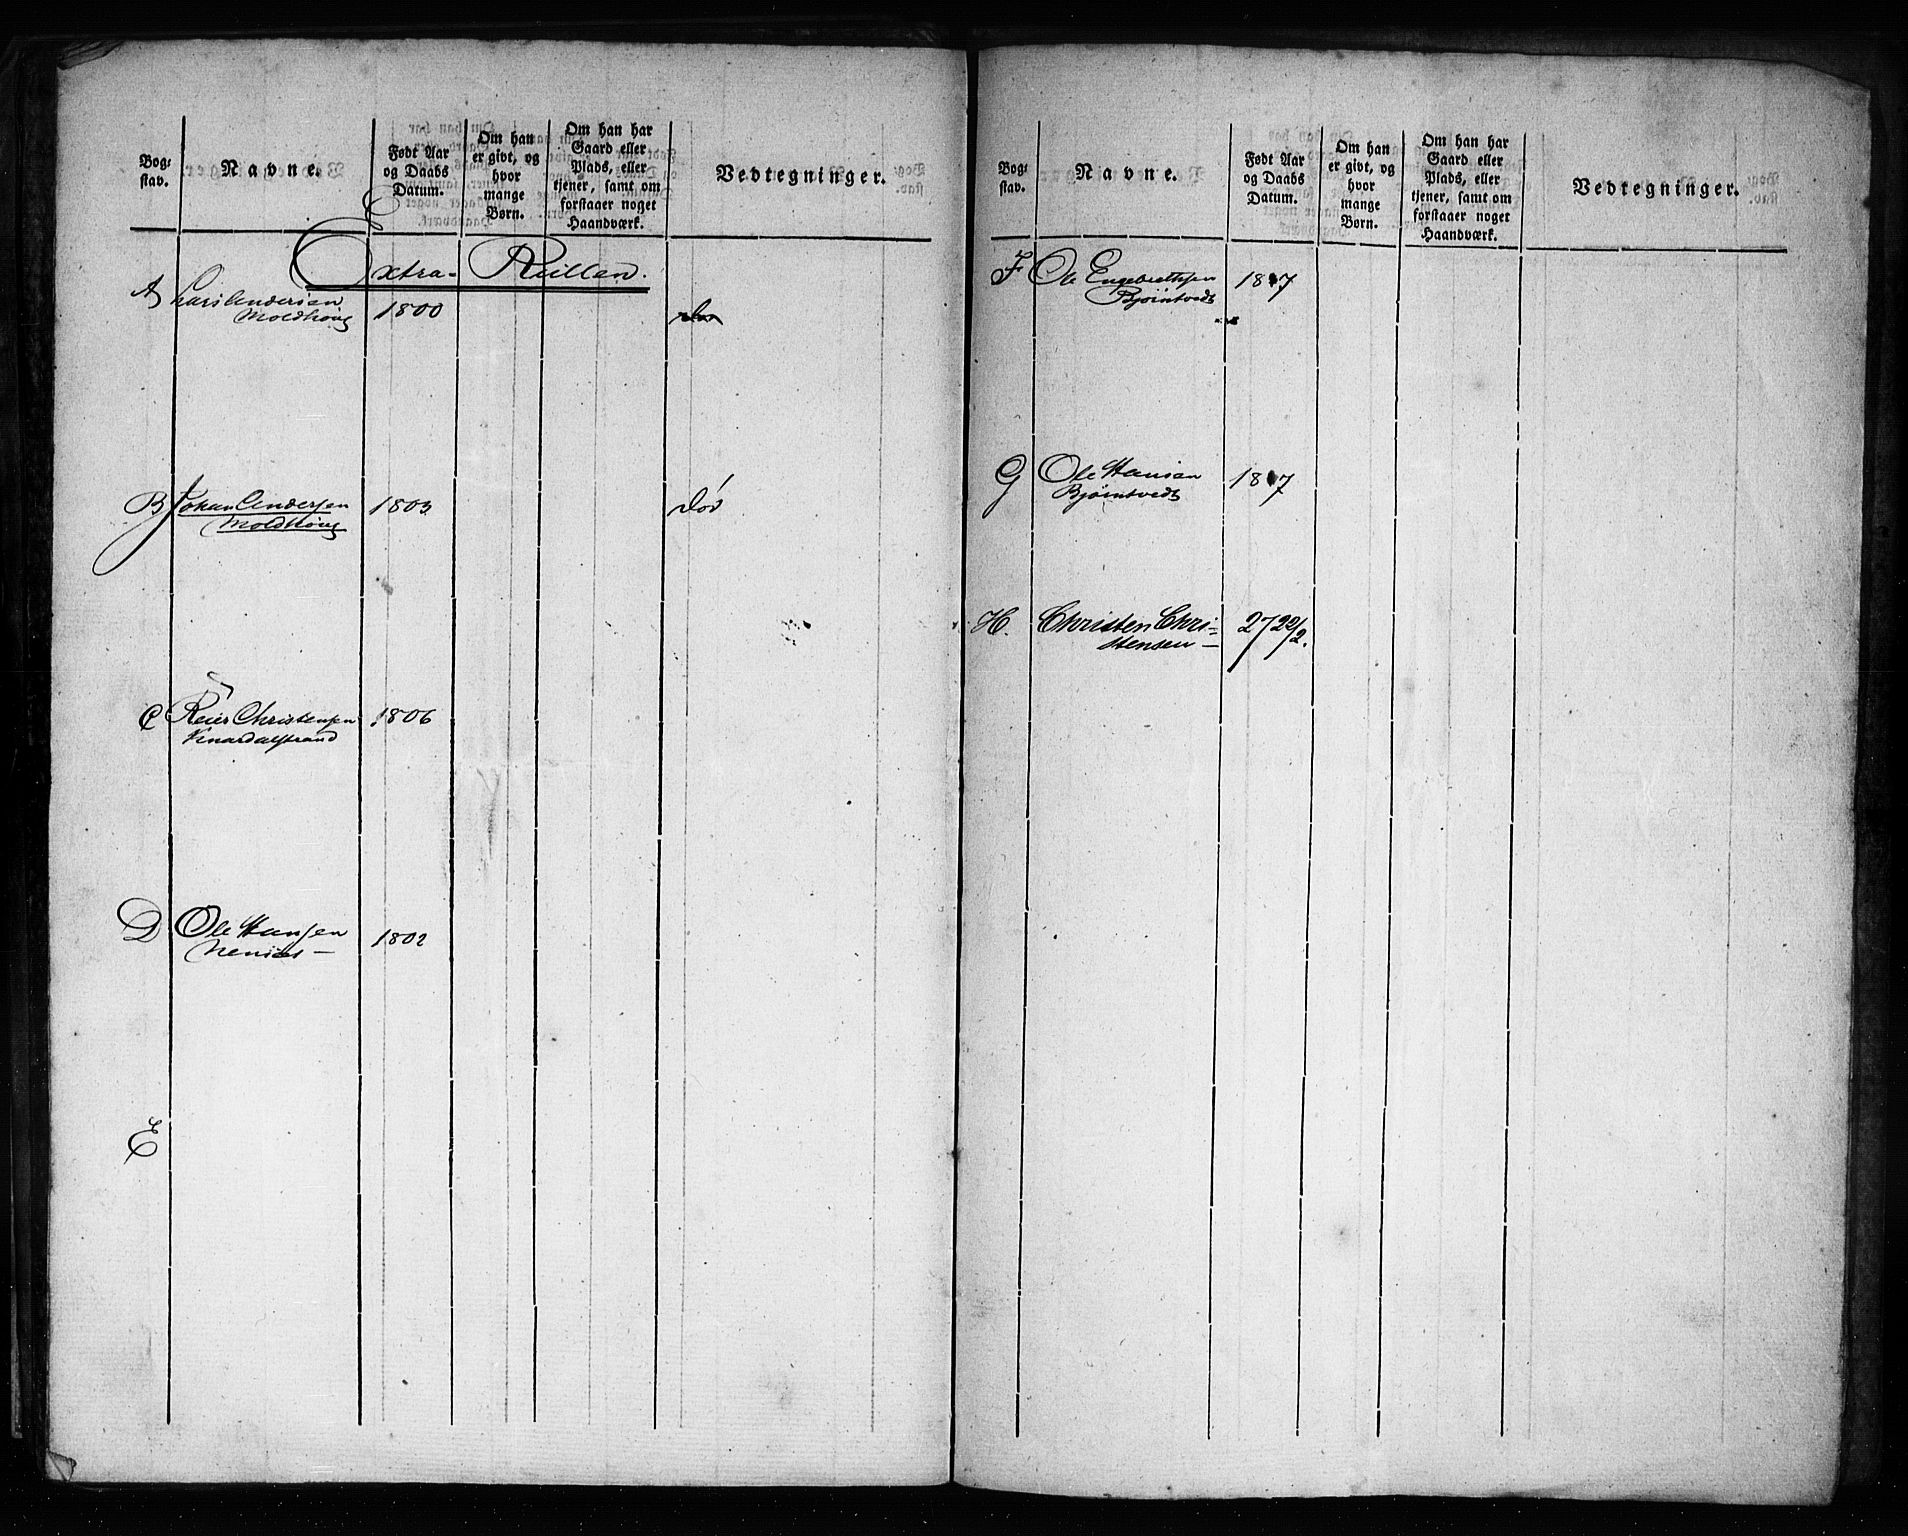 Bog-
stav.
Navne.
Født Aar
og Daabs
Datum.
Om han
er givt, og
hvor
mange
Børn.
Om han har
Gaard eller
Plads, eller
tjener, samt om
forstaaer noget
Haandværk.
Vedtegninger.
Extra-Rullen.
A Lars Andersen 1800
Moldhoug
B Johan Andersen 1803 død
Moldhoug
C Reier Christensen 1806
Knardalstrand
D Ole Hansen 1802
E
Bog-
stav.
Navne.
Født Aar
og Daabs
Datum.
Om han
er givt, og
hvor
mange
Børn.
Om han har
Gaard eller
Plads, eller
tjener, samt om
forstaaer noget
Haandværk.
Vedtegninger.
F Ole Engebrethsen
Bjørntvedt
G Ole Hansen
Bjørntvedt
H. Christen Chri-
stensen